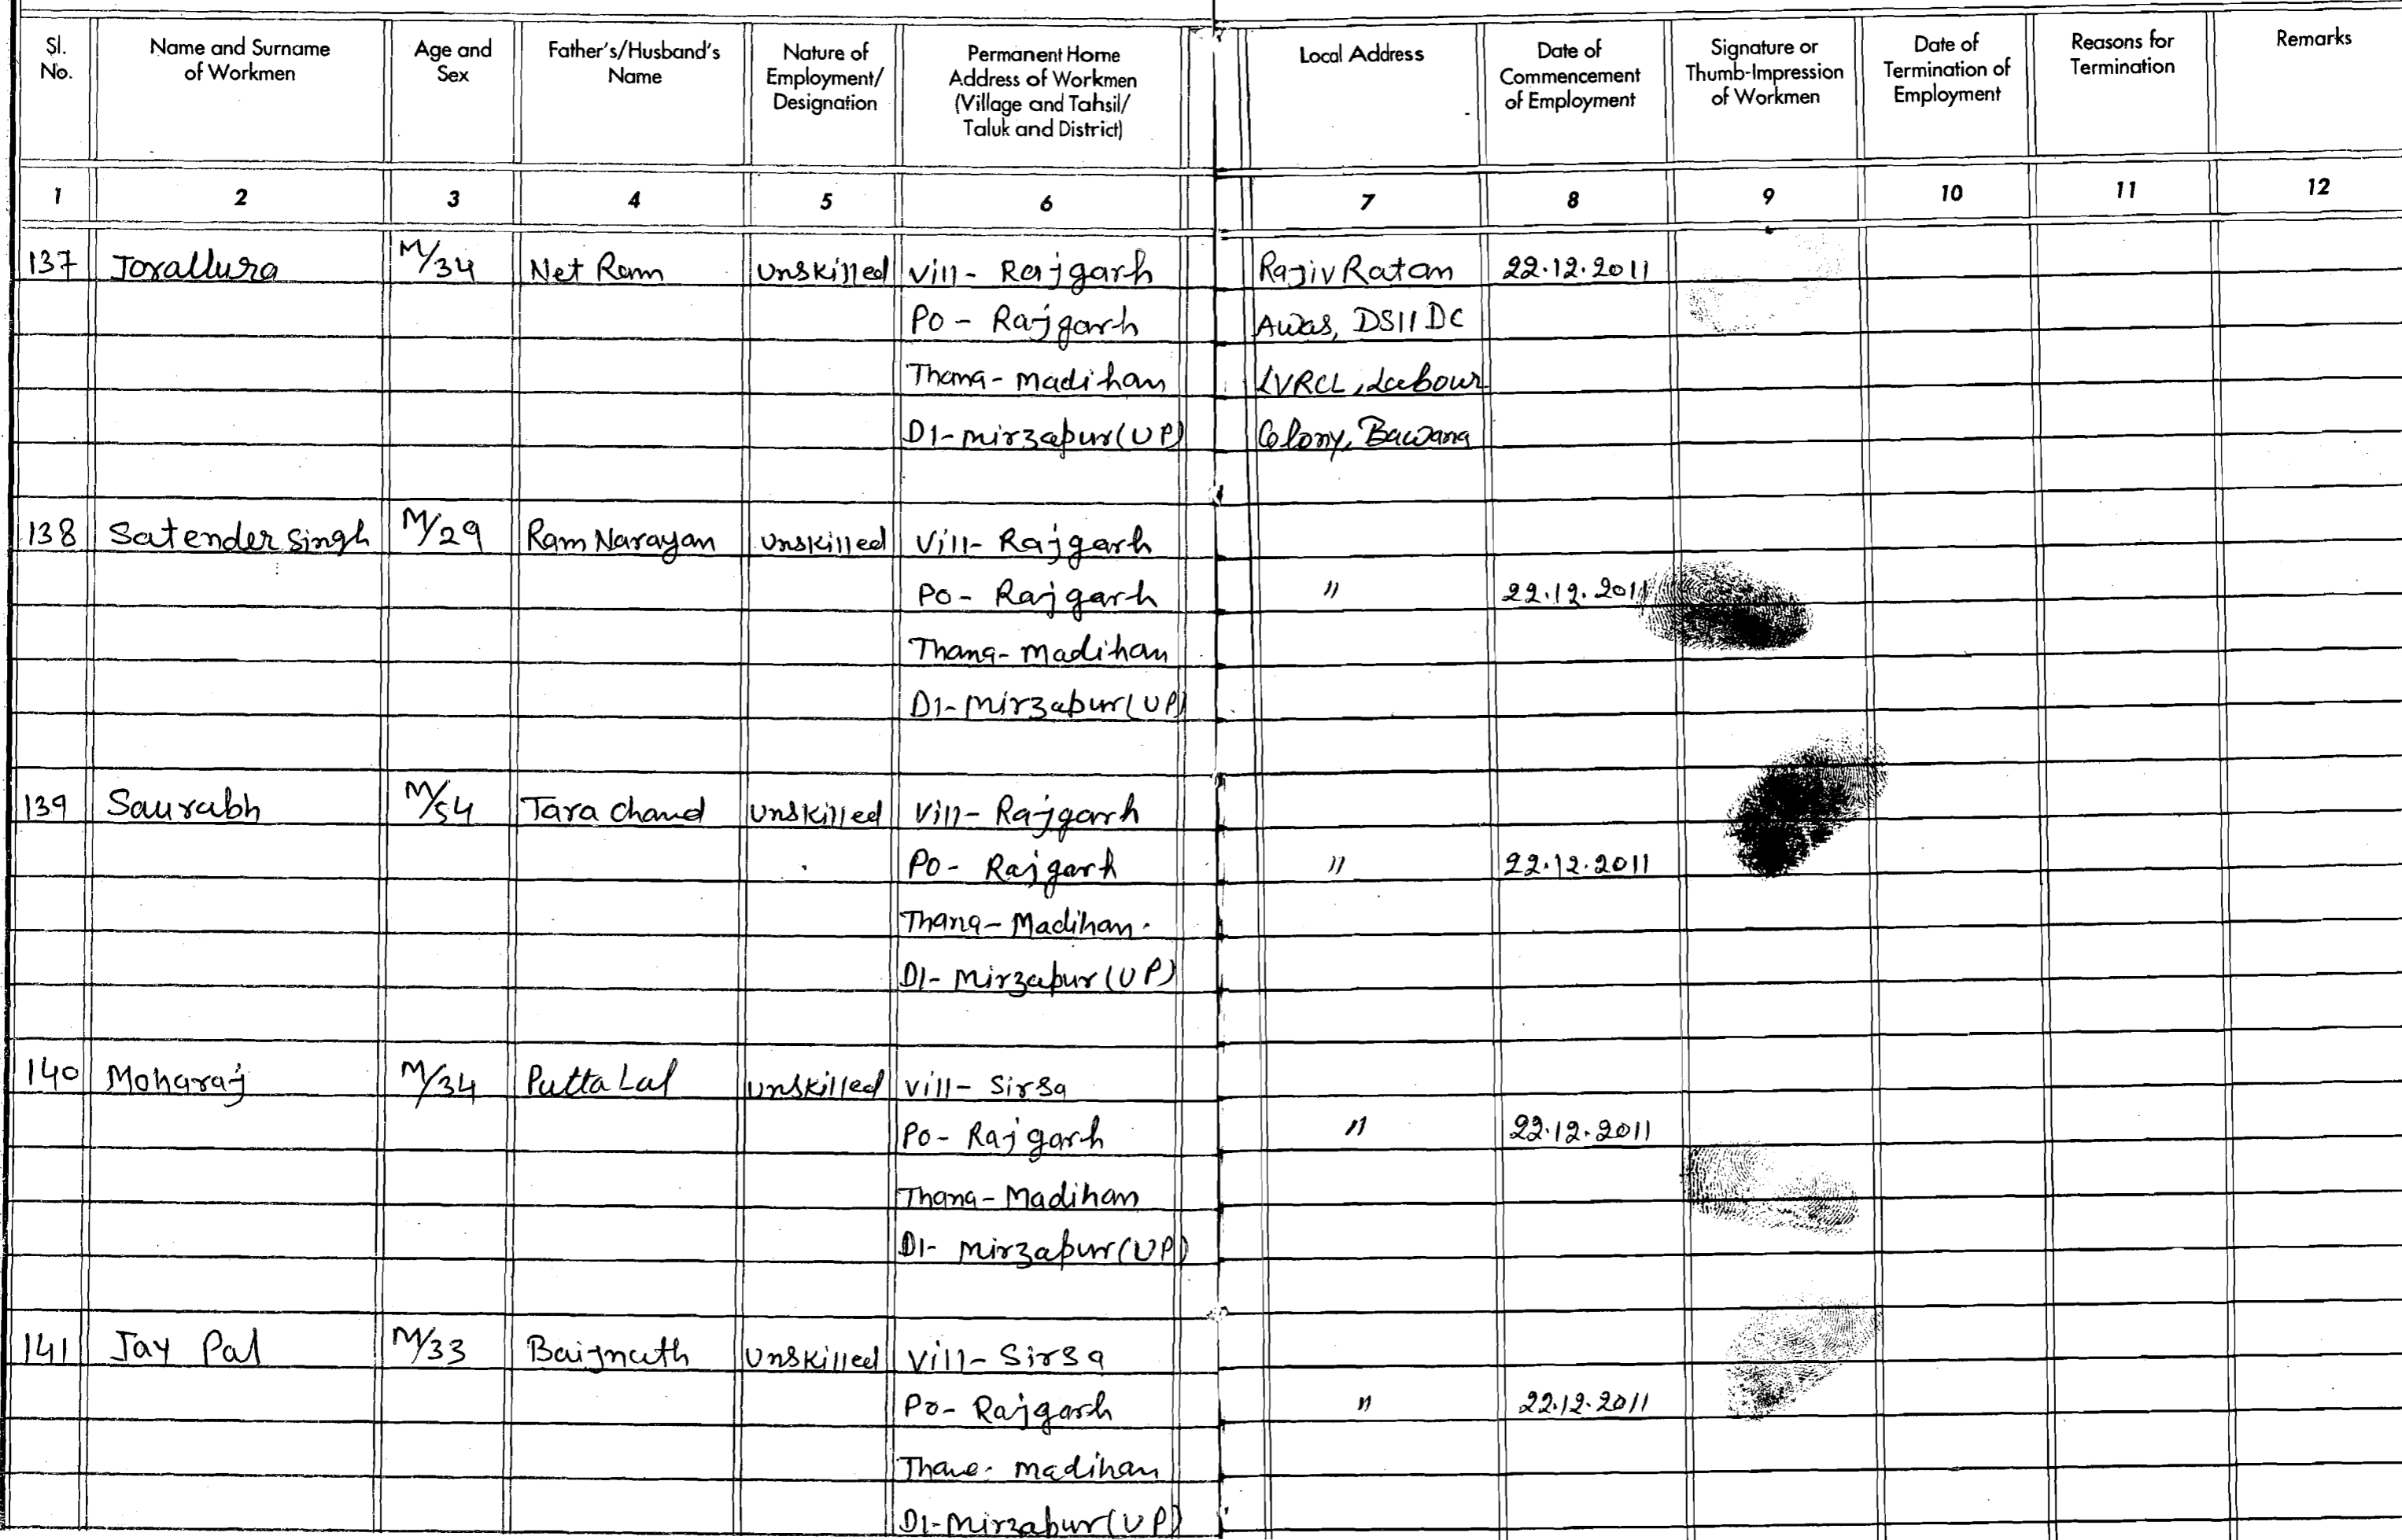 Sl. No. Name and Surname of Workmen Age and Sex Father's/Husband's Name Nature of Employment/ Designation Permanent Home Address of Workmen (Village and Tahsil/ Taluk and District) Local Address Date of Commencement of Employment Signature or Thumb-Impression of Workmen Date of Termination of Employment Reasons for Termination Remarks
1 2 3 4 5 6 7 8 9 10 11 12
137 Jorallura M/34 Net Ram Unskilled Vill- Rajgarh Rajiv Ratan 22.12.2011
Po - Rajgarh Awas, DSIIDC
Thana- Madihan IVRCL, Labour
DI- Mirzapur (UP) Colony, Bawana
138 Satender Singh M/29 Ram Narayan Unskilled Vill- Rajgarh
Po - Rajgarh " 22.12.2011
Thana- Madihan
DI- Mirzapur (UP)
139 Saurabh M/54 Tara Chand Unskilled Vill- Rajgarh
Po - Rajgarh " 22.12.2011
Thana- Madihan
DI- Mirzapur (UP)
140 Moharaj M/34 Putta Lal Unskilled Vill- Sirsa
Po - Rajgarh " 22.12.2011
Thana- Madihan
DI- Mirzapur (UP)
141 Jay Pal M/33 Baijnath Unskilled Vill- Sirsa
Po- Rajgarh " 22.12.2011
Thane- Madihan
DI- Mirzapur (UP)